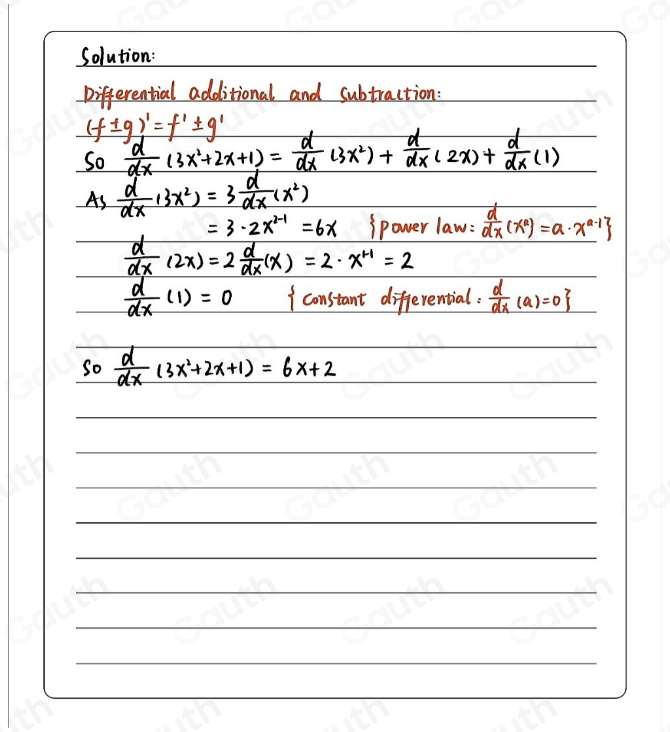 Solution:
Differential additional and subtraction:
(f ± g)' = f' ± g'
So d/dx (3x²+2x+1) = d/dx (3x²) + d/dx (2x) + d/dx (1)
As d/dx (3x²) = 3 d/dx (x²)
= 3·2x²⁻¹ = 6x {power law: d/dx (xᵃ) = a·xᵃ⁻¹}
d/dx (2x) = 2 d/dx (x) = 2·x¹⁻¹ = 2
d/dx (1) = 0 {constant differential: d/dx (a)=0}
So d/dx (3x²+2x+1) = 6x+2
Gauth